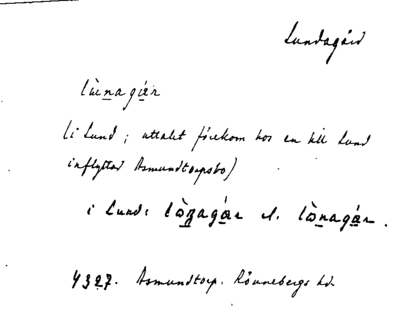 Lundagård
lù̱nagá̱r
(i Lund; uttalet förekom hos en till Lund
inflyttad Asmundtorpsbo)
i Lund: lò̱nagá̱r el. lò̱nagá̱r.
4327. Asmundtorp. Rönnebergs hd.